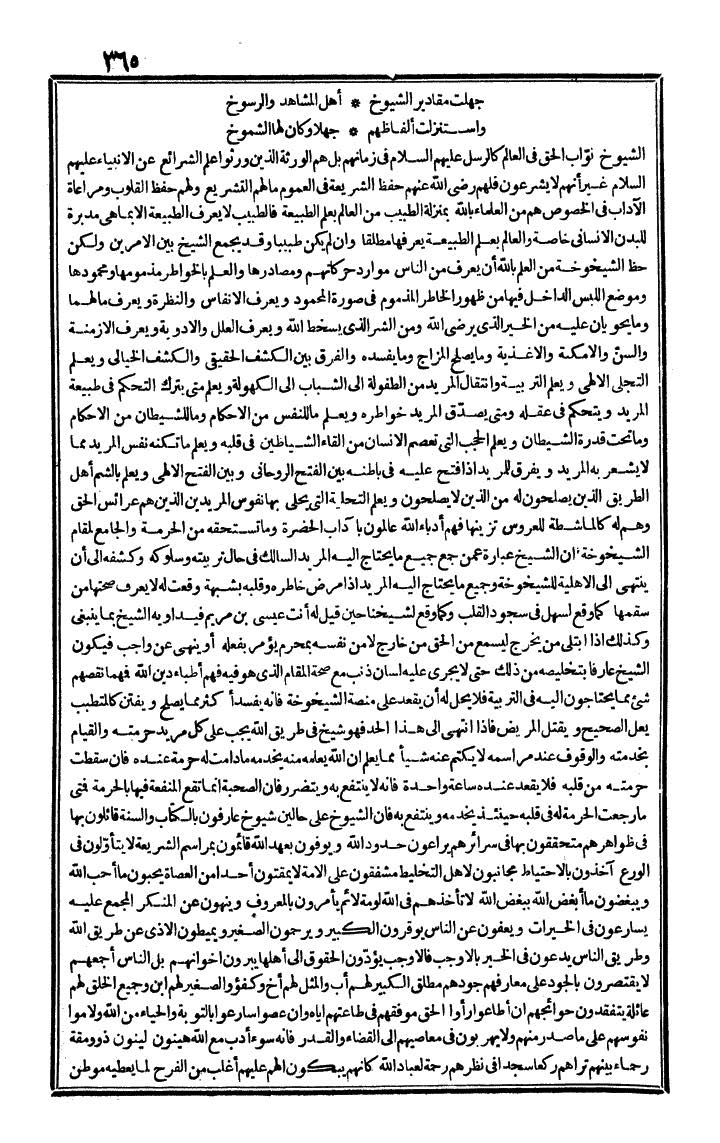 ٣٦٥
جهلت مقادير الشيوخ * أهل المشاهد والرسوخ
واستنزلت ألفاظهم * جهلا وكان لها الشموخ
الشيوخ نواب الحق فى العالم كالرسل عليهم السلام فى زمانهم بل هم الورثة الذين ورثوا علم الشرائع عن الانبياء عليهم
السلام غير أنهم لا يشرعون فلهم رضى الله عنهم حفظ الشريعة فى العموم ما لهم التشريع ولهم حفظ القلوب ومراعاة
الآداب فى الخصوص هم من العلماء بالله بمنزلة الطبيب من العالم بعلم الطبيعة فالطبيب لا يعرف الطبيعة الا بما هى مدبرة
للبدن الانسانى خاصة والعالم بعلم الطبيعة يعرفها مطلقا وان لم يكن طبيبا وقد يجمع الشيخ بين الامرين ولكن
حظ الشيخوخة من العلم بالله أن يعرف من الناس موارد حركاتهم ومصادرها والعلم بالخواطر مذمومها ومحمودها
وموضع اللبس الداخل فيها من ظهور الخاطر المذموم فى صورة المحمود ويعرف الانفاس والنظرة ويعرف ما لهما
وما يحويان عليه من الخير الذى يرضى الله ومن الشر الذى يسخط الله ويعرف العلل والادوية ويعرف الازمنة
والسن والامكنة والاغذية وما يصلح المزاج وما يفسده والفرق بين الكشف الحقيقى والكشف الخيالى ويعلم
التجلى الالهى ويعلم التربية وانتقال المريد من الطفولة الى الشباب الى الكهولة ويعلم متى يترك التحكم فى طبيعة
المريد ويتحكم فى عقله ومتى يصدّق المريد خواطره ويعلم ما للنفس من الاحكام وما للشيطان من الاحكام
وما تحت قدرة الشيطان ويعلم الحجب التى تعصم الانسان من القاء الشياطين فى قلبه ويعلم ما تكنه نفس المريد مما
لا يشعر به المريد ويفرق للمريد اذا فتح عليه فى باطنه بين الفتح الروحانى وبين الفتح الالهى ويعلم بالشم أهل
الطريق الذين يصلحون له من الذين لا يصلحون ويعلم التحلية التى يحلى بها نفوس المريدين الذين هم عرائس الحق
وهم له كالماشطة للعروس تزينها فهم أدباء الله عالمون بآداب الحضرة وما تستحقه من الحرمة والجامع لمقام
الشيخوخة ان الشيخ عبارة عمن جمع جميع ما يحتاج اليه المريد السالك فى حال تربيته وسلوكه وكشفه الى أن
ينتهى الى الاهلية للشيخوخة وجميع ما يحتاج اليه المريد اذا مرض خاطره وقلبه بشبهة وقعت له لا يعرف صحتها من
سقمها كما وقع لسهل فى سجود القلب وكما وقع لشيخنا حين قيل له أنت عيسى بن مريم فيداويه الشيخ بما ينبغى
وكذلك اذا ابتلى من يخرج ليسمع من الحق من خارج لا من نفسه بمحرم يؤمر بفعله أو ينهى عن واجب فيكون
الشيخ عارفا بتخليصه من ذلك حتى لا يجرى عليه لسان ذنب مع صحة المقام الذى هو فيه فهم أطباء دين الله فهما نقصهم
شئ مما يحتاجون اليه فى التربية فلا يحل له أن يقعد على منصة الشيخوخة فانه يفسد أكثر مما يصلح ويفتن كالمتطبب
يعل الصحيح ويقتل المريض فاذا انتهى الى هذا الحد فهو شيخ فى طريق الله يجب على كل مريد حرمته والقيام
بخدمته والوقوف عند مراسمه لا يكتم عنه شيأ مما يعلم ان الله يعلمه منه يخدمه ما دامت له حرمة عنده فان سقطت
حرمته من قلبه فلا يقعد عنده ساعة واحدة فانه لا ينتفع به ويتضرر فان الصحبة انما تقع المنفعة فيها بالحرمة فتى
ما رجعت الحرمة له فى قلبه حينئذ يخدمه وينتفع به فان الشيوخ على حالين شيوخ عارفون بالكتاب والسنة قائلون بها
فى ظواهرهم متحققون بها فى سرائرهم يراعون حدود الله ويوفون بعهد الله قائمون بمراسم الشريعة لا يتأولون فى
الورع آخذون بالاحتياط مجانبون لاهل التخليط مشفقون على الامة لا يمقتون أحدا من العصاة يحبون ما أحب الله
ويبغضون ما أبغض الله ببغض الله لا تأخذهم فى الله لومة لائم يأمرون بالمعروف وينهون عن المنكر المجمع عليه
يسارعون فى الخيرات ويعفون عن الناس يوقرون الكبير ويرحمون الصغير ويميطون الاذى عن طريق الله
وطريق الناس يدعون فى الخير بالاوجب فالاوجب يؤدّون الحقوق الى أهلها يبرون اخوانهم بل الناس أجمعهم
لا يقتصرون بالجود على معارفهم جودهم مطلق الكبير لهم أب والمثل لهم أخ وكفؤ والصغير لهم ابن وجميع الخلق لهم
عائلة يتفقدون حوائجهم ان أطاعوا رأوا الحق موفقهم فى طاعتهم اياه وان عصوا سارعوا بالتوبة والحياء من الله ولاموا
نفوسهم على ما صدر منهم ولا يهربون فى معاصيهم الى القضاء والقدر فانه سوء أدب مع الله هينون لينون ذو ومقة
رحماء بينهم تراهم ركعا سجدا فى نظرهم رحمة لعباد الله كانهم يبكون الهم عليهم أغلب من الفرح لما يعطيه موطن